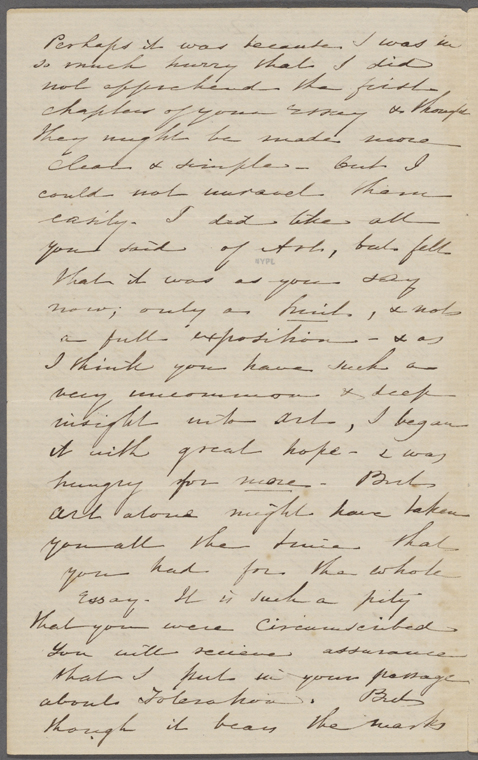 Perhaps it was because I was in
so much hurry that I did
not apprehend the first
chapters of your Essay & thought
they might be made more
clear & simple - but I
could not unravel them
easily. I did like all
you said of Art, but felt
NYPL
that it was as you say
now; only a hint, & not
a full exposition - & as
I think you have such a
very uncommon & deep
insight into Art, I began
it with great hope - & was
hungry for more - But
Art alone might have taken
you all the time that
you had for the whole
Essay. It is such a pity
that you were circumscribed
You will recieve assurance
that I put in your passage
about Toleration. But
though it bears the marks